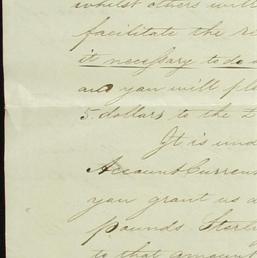 whilst others will
facilitate the re
it necessary to do a
and you will pl
5. dollars to the £
It is und
Account Curren
you grant us a
pounds Sterli
to that amount